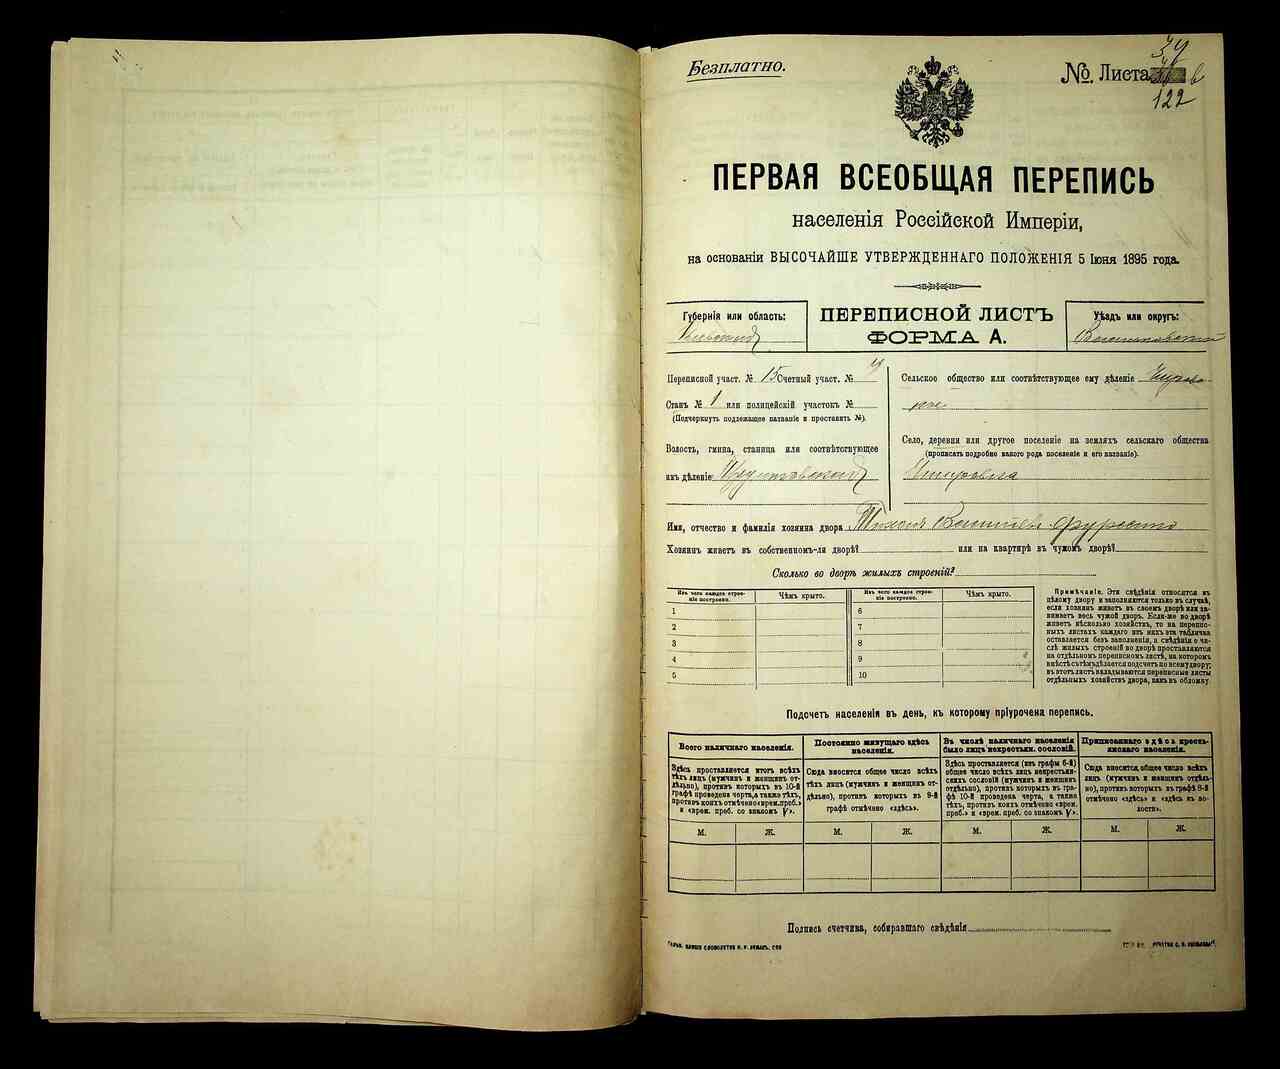 Безплатно.
№. Листа 39 в
122
ПЕРВАЯ ВСЕОБЩАЯ ПЕРЕПИСЬ
населенія Россійской Имперіи,
на основаніи ВЫСОЧАЙШЕ УТВЕРЖДЕННАГО ПОЛОЖЕНІЯ 5 Іюня 1895 года.
Губернія или область:
Кіевская
ПЕРЕПИСНОЙ ЛИСТЪ
ФОРМА А.
Уѣздъ или округъ:
Васильковскій
Переписной участ. № 15 Счетный участ. №
Станъ № 1 или полицейскій участокъ №
(Подчеркнуть подлежащее названіе и проставить №).
Волость, гмина, станица или соотвѣтствующее
имъ дѣленіе:
Сельское общество или соотвѣтствующее ему дѣленіе
Село, деревня или другое поселеніе на земляхъ сельскаго общества
(прописать подробно какого рода поселеніе и его названіе).
Имя, отчество и фамилія хозяина двора
Хозяинъ живетъ въ собственномъ-ли дворѣ? или на квартирѣ въ чужомъ дворѣ?
Сколько во дворѣ жилыхъ строеній?
Изъ чего каждое строеніе построено.
Чѣмъ крыто.
1
2
3
4
5
Изъ чего каждое строеніе построено.
Чѣмъ крыто.
6
7
8
9
10
Примѣчаніе. Эти свѣдѣнія относятся къ
цѣлому двору и заполняются только въ случаѣ,
если хозяинъ живетъ въ своемъ дворѣ или за-
нимаетъ весь чужой дворъ. Если-же во дворѣ
живетъ нѣсколько хозяйствъ, то на перепис-
ныхъ листахъ каждаго изъ нихъ эта табличка
оставляется безъ заполненія, а свѣдѣнія о чи-
слѣ жилыхъ строеній во дворѣ проставляются
на отдѣльномъ переписномъ листѣ, на которомъ
вмѣстѣ съ тѣмъ дѣлается подсчетъ по всему двору;
въ этотъ листъ вкладываются переписные листы
отдѣльныхъ хозяйствъ двора, какъ въ обложку.
Подсчетъ населенія въ день, къ которому пріурочена перепись.
Всего наличнаго населенія.
Здѣсь проставляется итогъ всѣхъ
тѣхъ лицъ (мужчинъ и женщинъ от-
дѣльно), противъ которыхъ въ 10-й
графѣ проведена черта, а также тѣхъ,
противъ коихъ отмѣчено «врем. преб.»
и «врем. преб. со знакомъ V».
Постоянно живущаго здѣсь
населенія.
Сюда вносится общее число всѣхъ
тѣхъ лицъ (мужчинъ и женщинъ от-
дѣльно), противъ которыхъ въ 9-й
графѣ отмѣчено «здѣсь».
Въ числѣ наличнаго населенія
было лицъ некрестьян. сословій.
Здѣсь проставляется (изъ графы 6-й)
общее число всѣхъ лицъ некрестьян-
скихъ сословій (мужчинъ и женщинъ
отдѣльно), противъ которыхъ въ гра-
фѣ 10-й проведена черта, а также
тѣхъ, противъ коихъ отмѣчено «врем.
преб.» и «врем. преб. со знакомъ V».
Приписаннаго здѣсь кресть-
янскаго населенія.
Сюда вносится общее число всѣхъ
лицъ (мужчинъ и женщинъ отдѣль-
но), противъ которыхъ въ графѣ 8-й
отмѣчено «здѣсь» и «здѣсь въ во-
лости».
М. Ж. М. Ж. М. Ж. М. Ж.
Подпись счетчика, собиравшаго свѣдѣнія